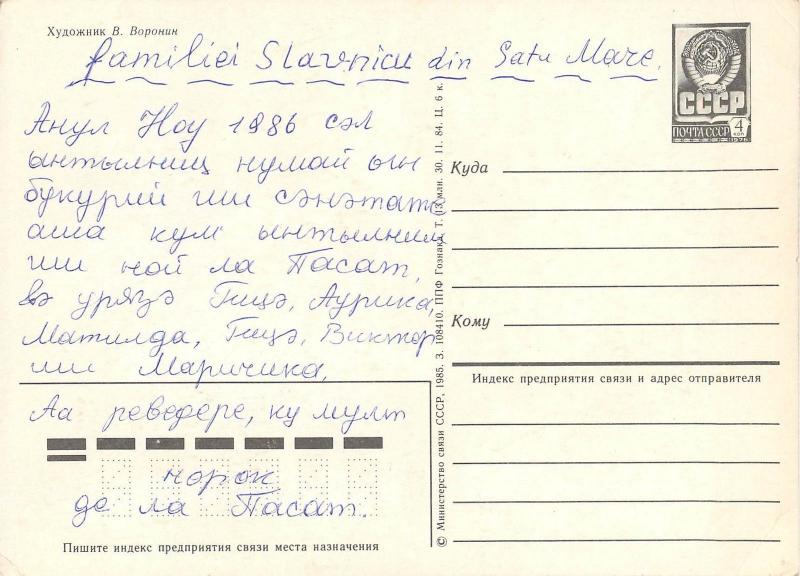 Художник В. Воронин
familiei Slavnicu din Satu Mare.
СССР
ПОЧТА СССР
4 коп
1978
Анул Ноу 1986 сэл
ынтылниц нумай ын
букурий ши сэнэтате
аша кум ынтылним
ши ной ла Пасат,
вэ урязэ Гицэ, Аурика,
Матилда, Гицэ, Виктор
ши Маричика.
Ла реведере, ку мулт
норок
де ла Пасат.
Пишите индекс предприятия связи места назначения
© Министерство связи СССР, 1985. З. 108410. ППФ Гознака. Т. (3 млн. 30. 11. 84. Ц. 6 к.
Куда
Кому
Индекс предприятия связи и адрес отправителя